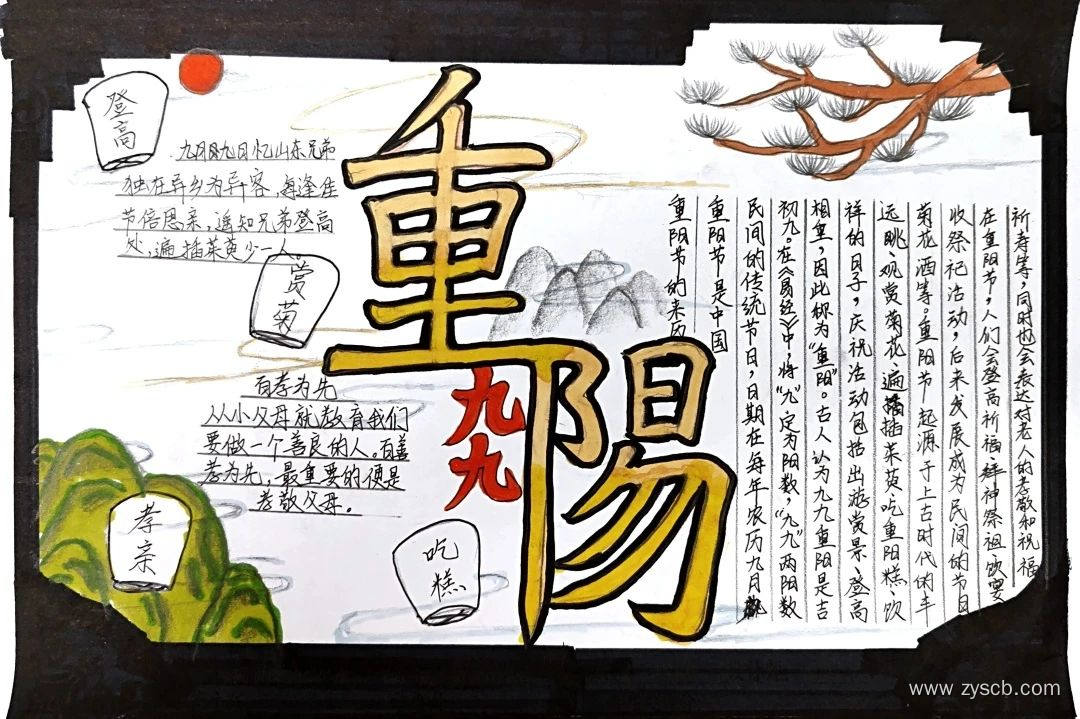 登高
九月九日忆山东兄弟
独在异乡为异客,每逢佳
节倍思亲,遥知兄弟登高
处,遍插茱萸少一人。
赏菊
百孝为先
从小父母就教育我们
要做一个善良的人。百善
孝为先,最重要的便是
孝敬父母。
孝亲
吃糕
重阳
九九
重阳节的来历
重阳节是中国
民间的传统节日,日期在每年农历九月
初九。在《易经》中,将“九”定为阳数,“九九”两阳数
相重,因此称为“重阳”。古人认为九九重阳是吉
祥的日子,庆祝活动包括出游赏景、登高
远眺、观赏菊花、遍插茱萸、吃重阳糕、饮
菊花酒等。重阳节起源于上古时代的丰
收祭祀活动,后来发展成为民间的节日
在重阳节,人们会登高祈福、拜神祭祖、饮宴
祈寿等,同时也会表达对老人的孝敬和祝福
www.zyscb.com